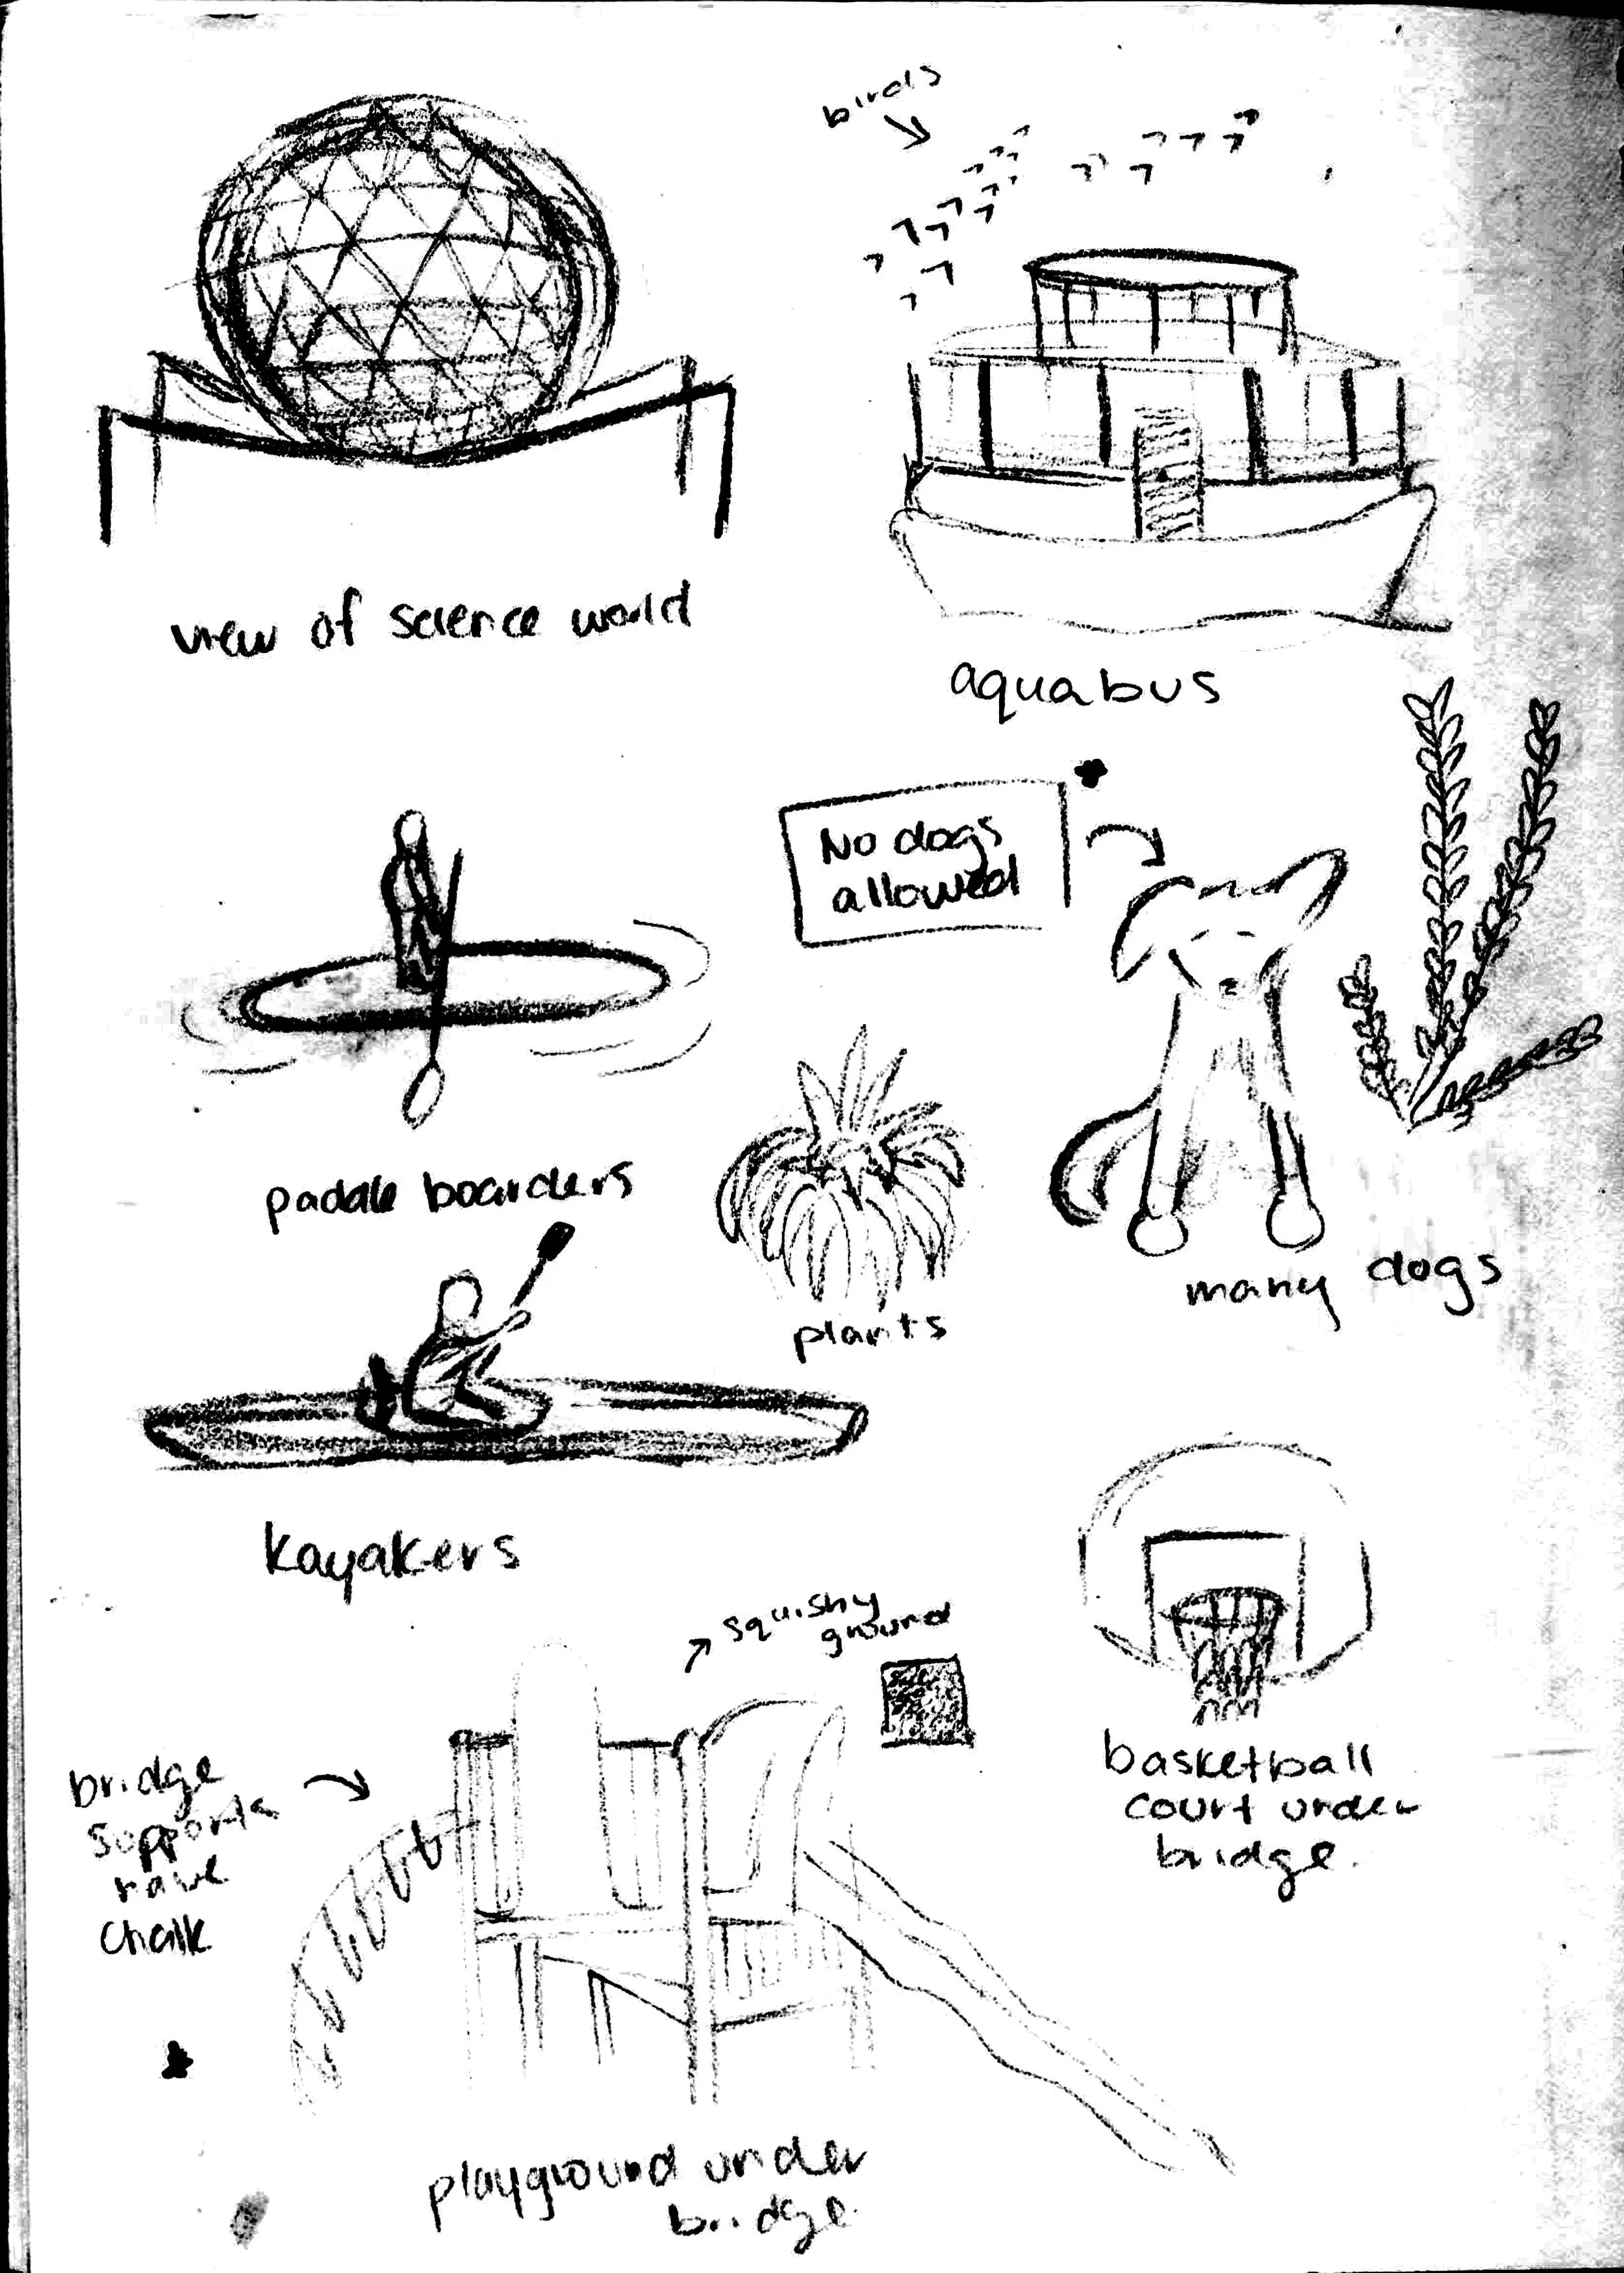 birds
view of science world
aquabus
No dogs
allowed
paddle boarders
many dogs
plants
kayakers
squishy
ground
bridge
supports
have
chalk
basketball
court under
bridge.
playground under
bridge